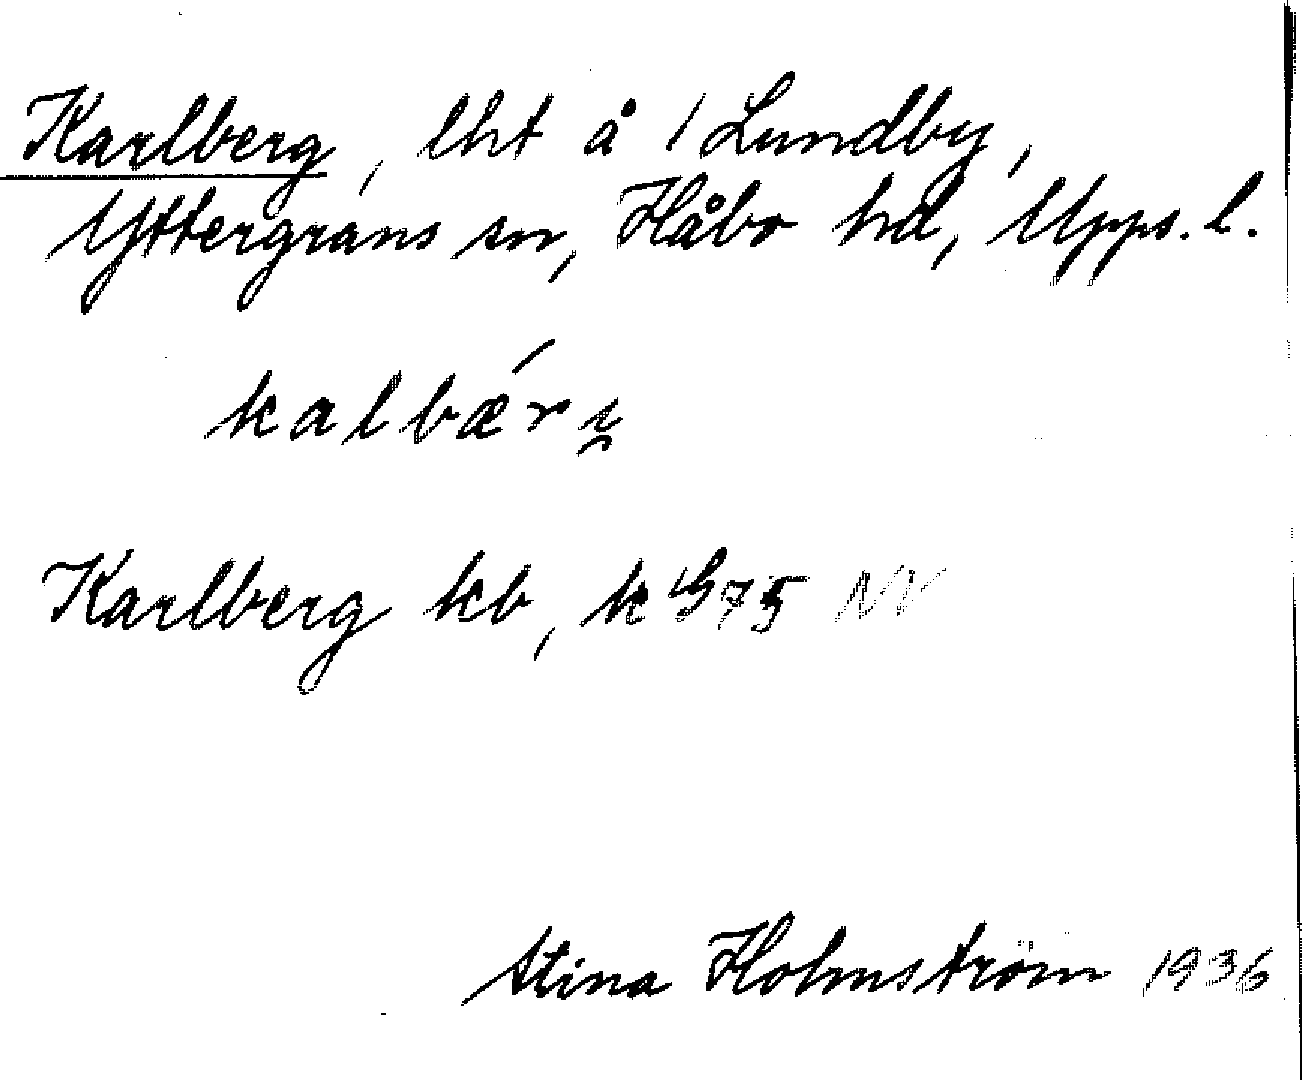 Karlberg, lht å 1 Lundby,
Yttergrans sn, Håbo hd, Upps. l.
kalbǽrı̯
Karlberg kb, k G 75 NV
Stina Holmström 1936